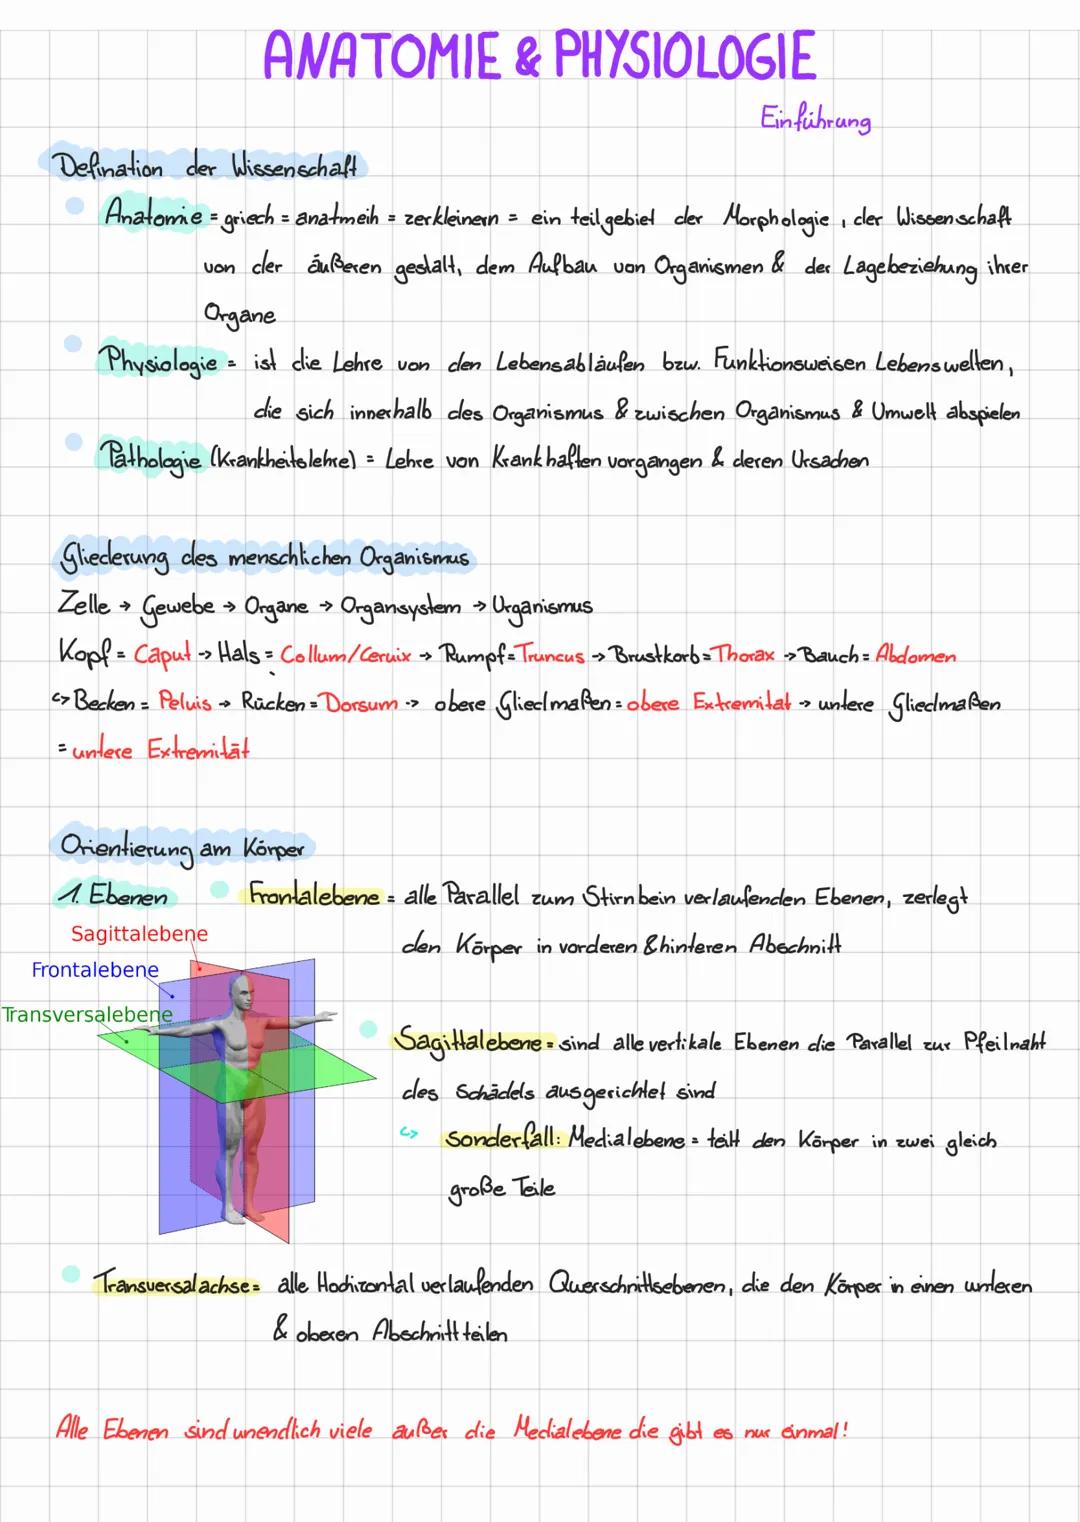 ANATOMIE & PHYSIOLOGIE
Einführung
Defination der Wissenschaft
Anatomie = griech = anatmeih = zerkleinern = ein teilgebiet der Morphologie, der Wissenschaft
von der äußeren gestalt, dem Aufbau von Organismen & der Lagebeziehung ihrer
Organe
Physiologie = ist die Lehre von den Lebensabläufen bzw. Funktionsweisen Lebenswelten,
die sich innerhalb des Organismus & zwischen Organismus & Umwelt abspielen
Pathologie (Krankheitslehre) = Lehre von Krankhaften vorgangen & deren Ursachen
Gliederung des menschlichen Organismus
Zelle → Gewebe → Organe → Organsystem → Organismus
Kopf = Caput → Hals = Collum/Cervix → Rumpf = Truncus → Brustkorb = Thorax → Bauch = Abdomen
↳ Becken = Pelvis → Rücken = Dorsum → obere Gliedmaßen = obere Extremität → untere Gliedmaßen
= untere Extremität
Orientierung am Körper
1. Ebenen Frontalebene = alle Parallel zum Stirnbein verlaufenden Ebenen, zerlegt
den Körper in vorderen & hinteren Abschnitt
Sagittalebene
Frontalebene
Transversalebene
Sagittalebene = sind alle vertikale Ebenen die Parallel zur Pfeilnaht
des Schädels ausgerichtet sind
↳ sonderfall: Medialebene = teilt den Körper in zwei gleich
große Teile
Transversalachse = alle Hochizontal verlaufenden Querschnittsebenen, die den Körper in einen unteren
& oberen Abschnitt teilen
Alle Ebenen sind unendlich viele außer die Medialebene die gibt es nur einmal!